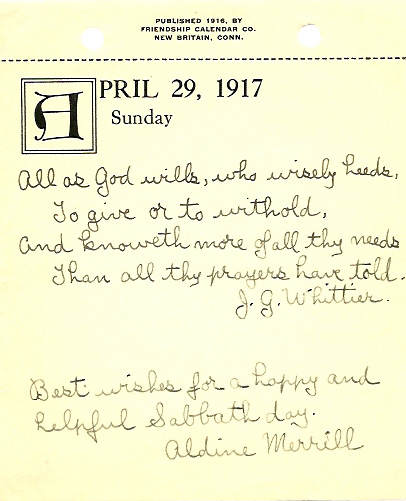 PUBLISHED 1916, BY
FRIENDSHIP CALENDAR CO.
NEW BRITAIN, CONN.
APRIL 29, 1917
Sunday
All as God wills, who wisely heeds,
To give or to withold,
And knoweth more of all thy needs
Than all thy prayers have told.
J. G. Whittier.
Best wishes for a happy and
helpful Sabbath day.
Aldine Merrill